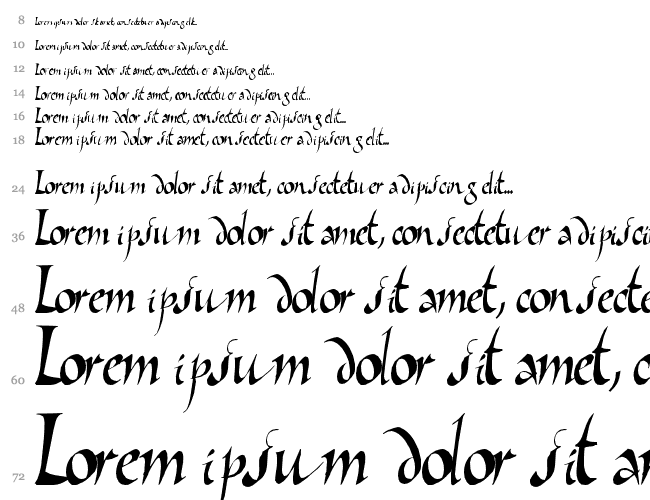 8 Lorem ipsum dolor sit amet, consectetuer adipiscing elit...
10 Lorem ipsum dolor sit amet, consectetuer adipiscing elit...
12 Lorem ipsum dolor sit amet, consectetuer adipiscing elit...
14 Lorem ipsum dolor sit amet, consectetuer adipiscing elit...
16 Lorem ipsum dolor sit amet, consectetuer adipiscing elit...
18 Lorem ipsum dolor sit amet, consectetuer adipiscing elit...
24 Lorem ipsum dolor sit amet, consectetuer adipiscing elit...
36 Lorem ipsum dolor sit amet, consectetuer adipisci
48 Lorem ipsum dolor sit amet, consecte
60 Lorem ipsum dolor sit amet, c
72 Lorem ipsum dolor sit am